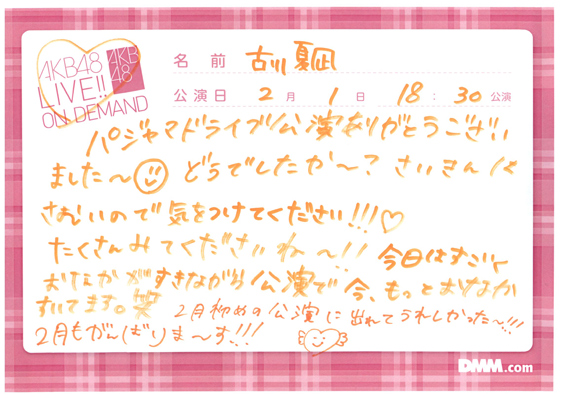 AKB48
LIVE!!
ON DEMAND
AKB
48
名前 古川夏凪
公演日 2月 1日 18:30公演
パジャマドライブ公演ありがとうござい
ました〜 どうでしたか〜? さいきんは
さむいので気をつけてください!!!♡
たくさんみてくださいね〜!! 今日はすごく
おなかがすきながら公演で今、もっとおなか
すいてます。笑 2月初めの公演に出れてうれしかった〜!!!
2月もがんばりま〜す!!!
DMM.com